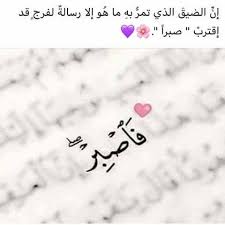 إنِّ الضيقَ الذي تمرَّ بهِ ما هُو إلا رسالةً لفرجٍ قد
إقتربْ " صبراً ".🌸💜
فَٱصْبِرْ